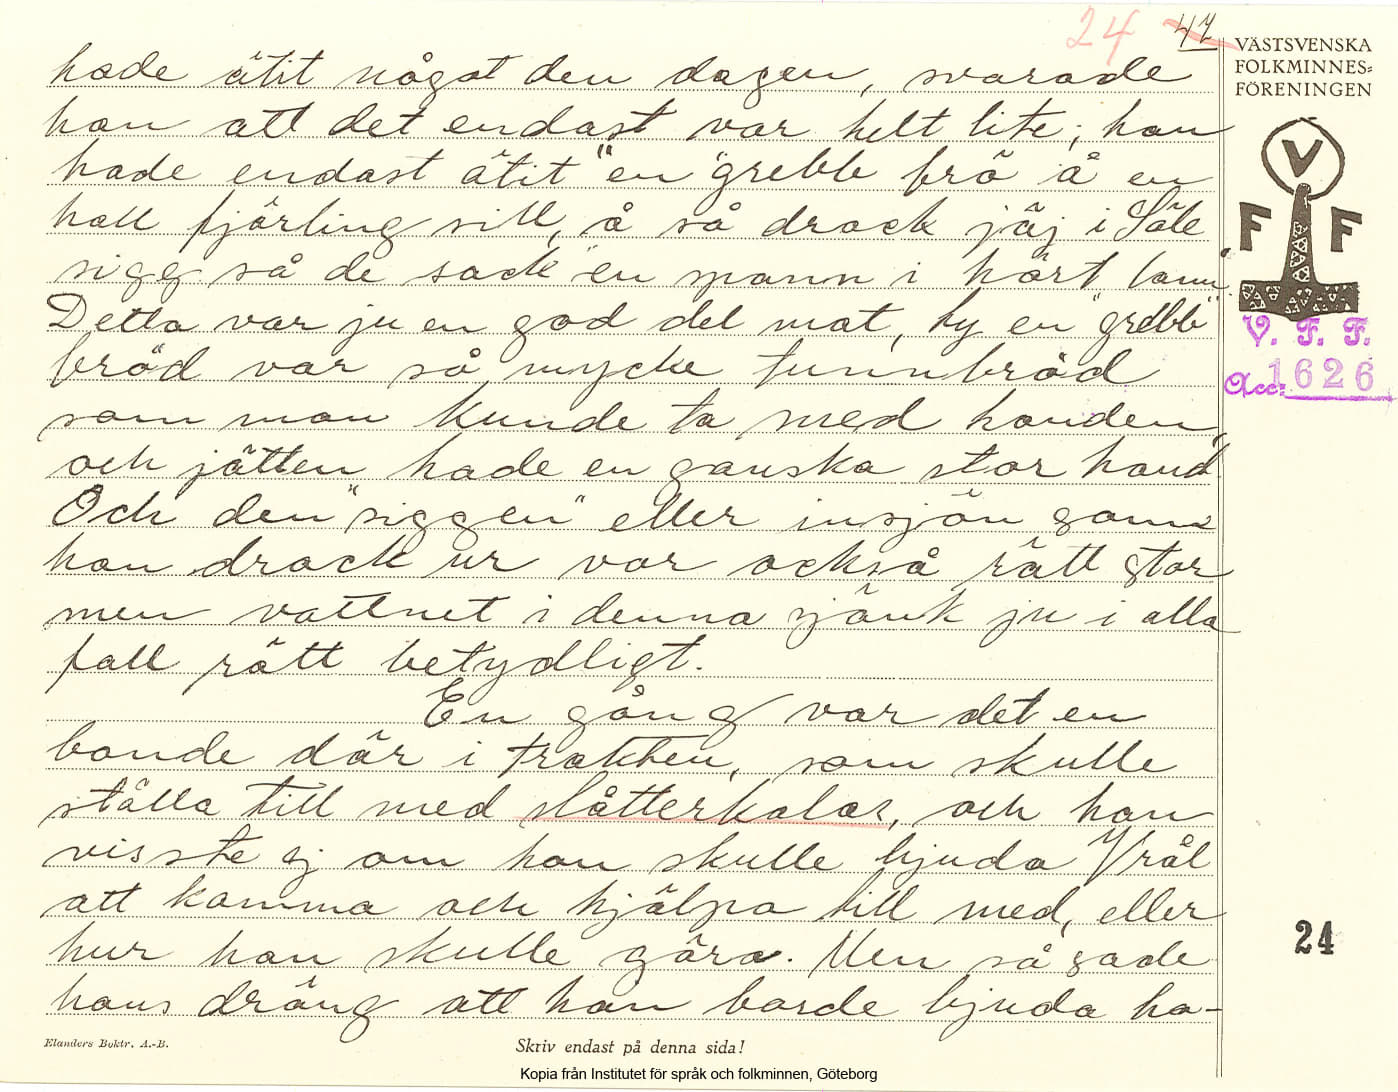 24 42
VÄSTSVENSKA
FOLKMINNES=
FÖRENINGEN
V
F F
V. F. F.
Acc: 1626
hade ätit något den dagen, svarade
han att det endast var helt lite; han
hade endast ätit "en grebb brö å en
hall fjärling sill, å så drack jäj i Säle
sigg så de sack en mann i hårt lann"
Detta var ju en god del mat, ty en "grebb"
bröd var så mycke tunnbröd
som man kunde ta med handen,
och jätten hade en ganska stor hand.
Och den "siggen" eller insjön som
han drack ur var också rätt stor
men vattnet i denna sjönk ju i alla
fall rätt betydligt.
En gång var det en
bonde där i trakten, som skulle
ställa till med slåtterkalas, och han
visste ej om han skulle bjuda Vrål
att komma och hjälpa till med, eller
hur han skulle göra. Men så sade
hans dräng att han borde bjuda ho-
24
Elanders Boktr. A.-B.
Skriv endast på denna sida!
Kopia från Institutet för språk och folkminnen, Göteborg